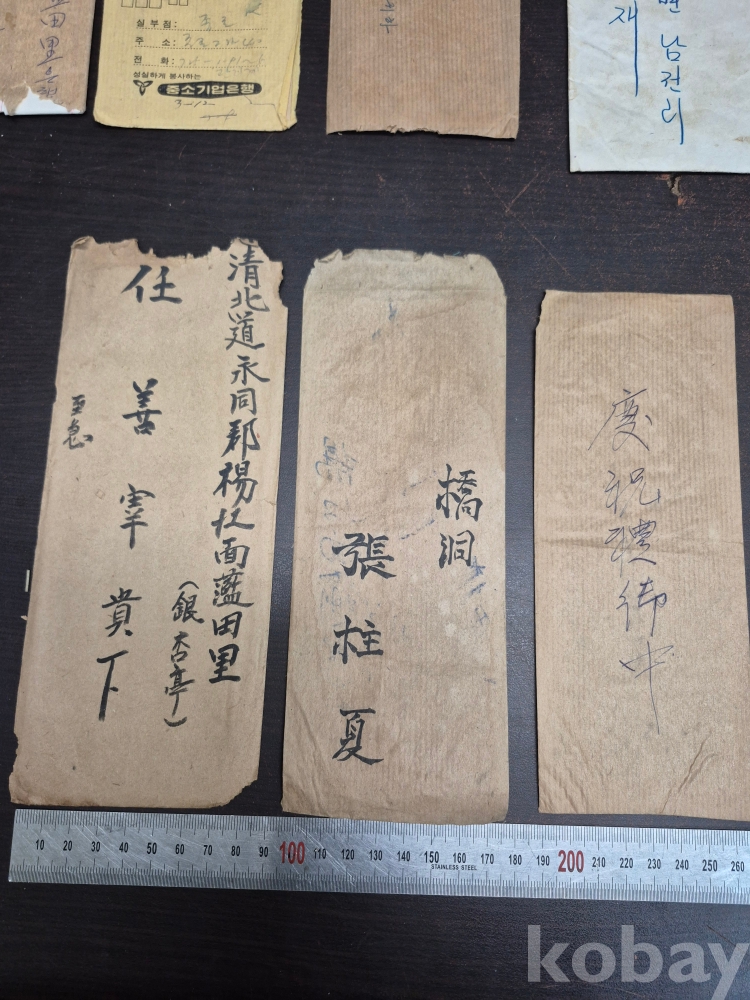 田里
실부점:
주 소:
전 화:
성실하게 봉사하는
중소기업은행
3-12
면 남전리
재
清北道永同郡楊江面藍田里
(銀杏亭)
任善宰貴下
至急
橋洞
張柱夏
慶祝禮
中
10 20 30 40 50 60 70 80 90 100 110 120 130 140 150 160 170 180 190 200 210 220 230 240 250 260
STAINLESS STEEL
kobay